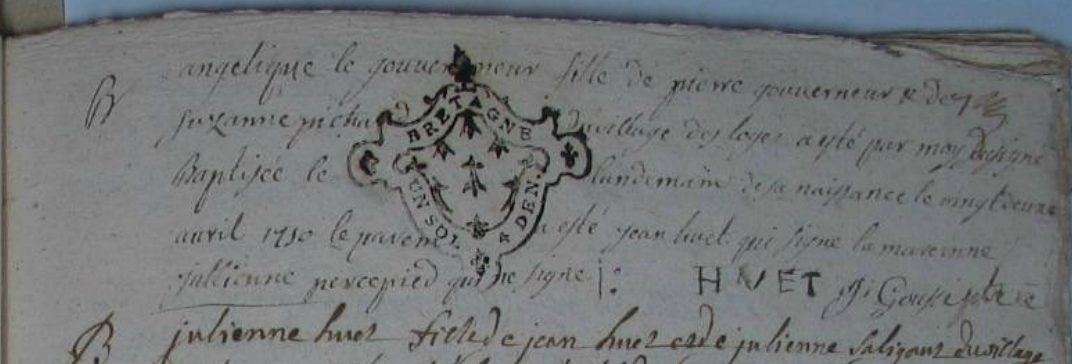 B angelique le gouverneur fille de pierre gouverneur & de
suzanne picha du village des loges a esté par moy
Baptisée le landemain de sa naissance le vingt deuxe
auril 1710 le parein a esté jean huet qui signe la mareinne
jullienne percepied qui ne signe HUET
BRETAGNE
UN SOL 4 DEN.
B julienne huet fille de jean huet et de julienne saligaut du village